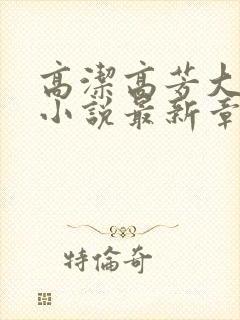 高潔高芳大
小說最新章
特倫奇